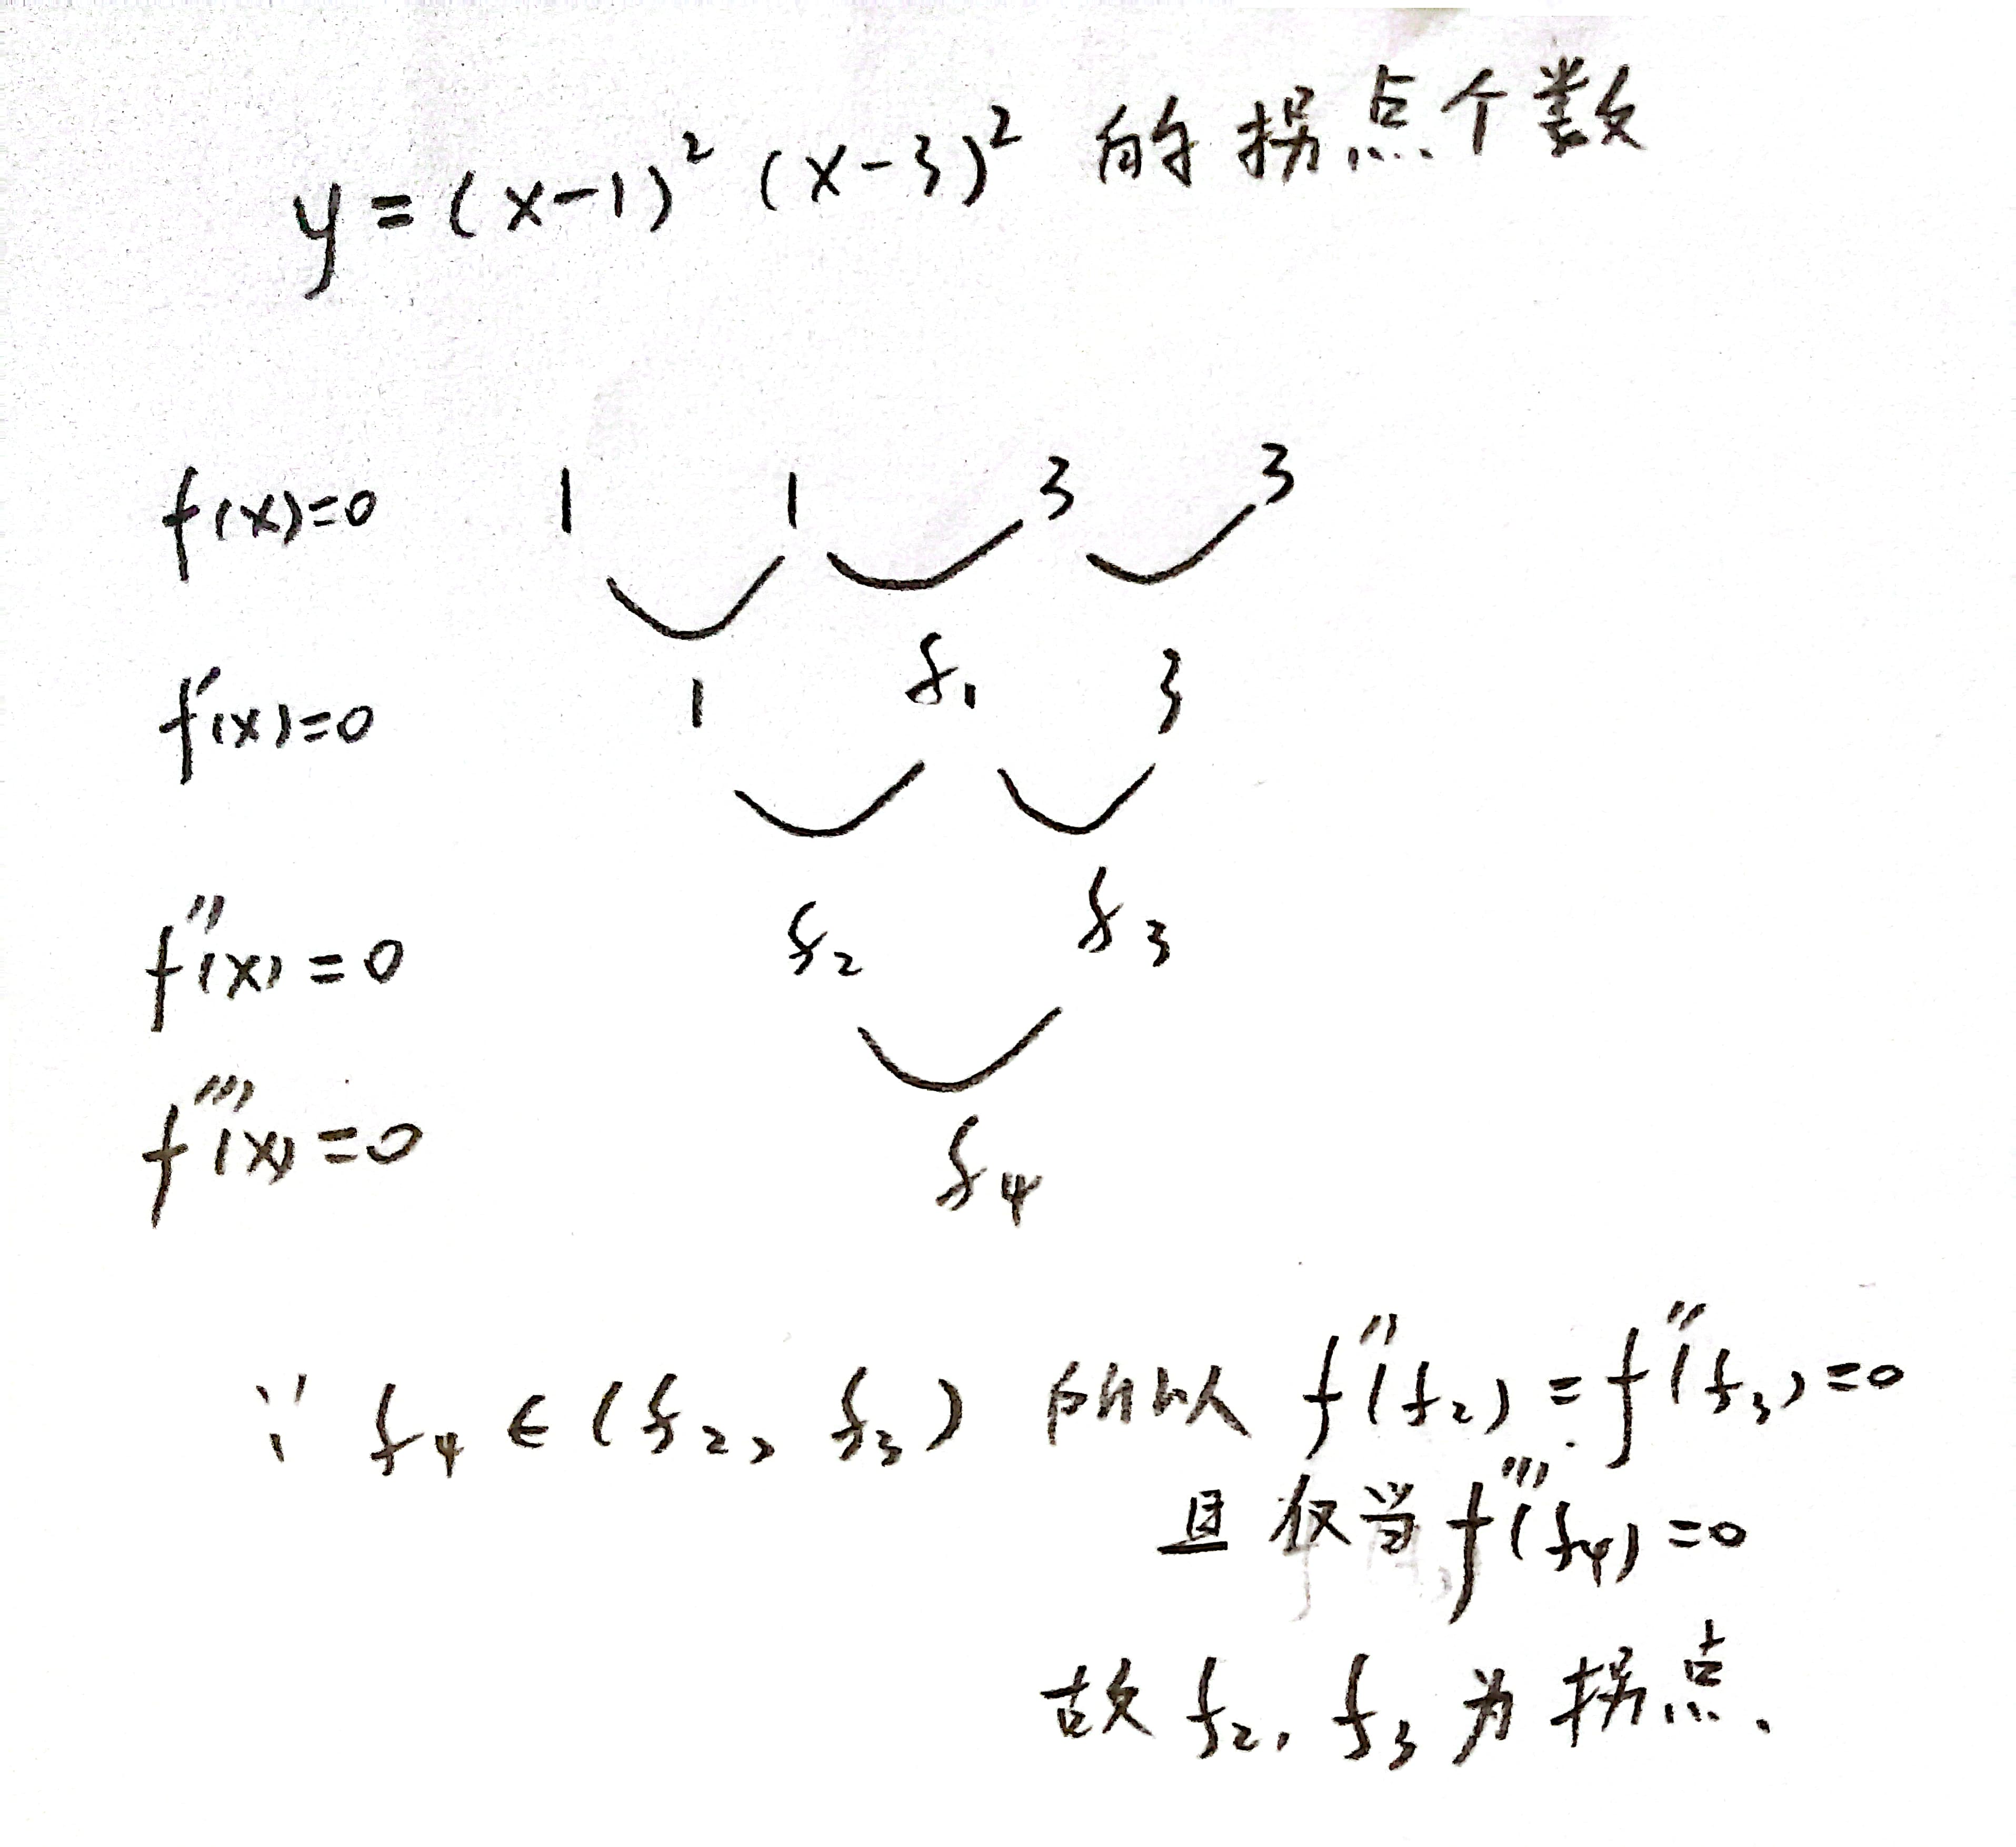 y=(x-1)² (x-3)² 的拐点个数
f(x)=0 1 1 3 3
f'(x)=0 1 ξ₁ 3
f''(x)=0 ξ₂ ξ₃
f'''(x)=0 ξ₄
∵ ξ₄ ∈ (ξ₂, ξ₃) 所以 f''(ξ₂)=f''(ξ₃)=0
且仅当 f'''(ξ₄)=0
故 ξ₂, ξ₃ 为拐点.